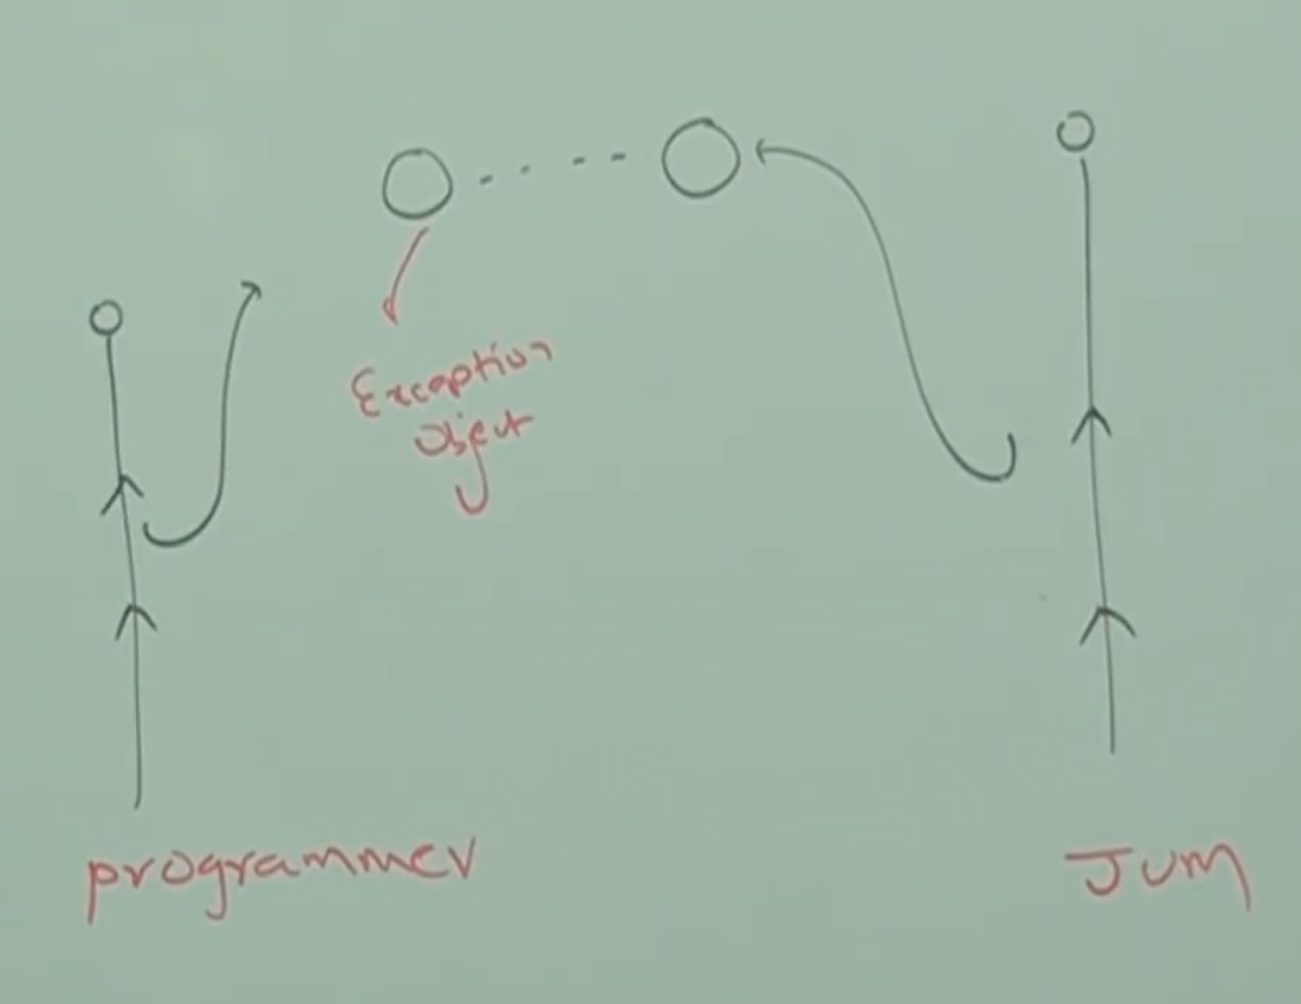 Exception
Object
programmer
JVM